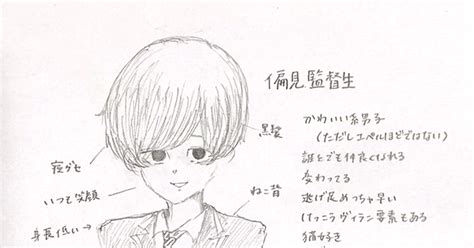 偏見監督生
かわいい系男子
(ただしエペルほどではない)
誰とでも仲良くなれる
変わってる
逃げ足めっちゃ早い
けっこうヴィラン要素もある
猫好き
黒髪
寝グセ
いつも笑顔
ねこ背
身長低い